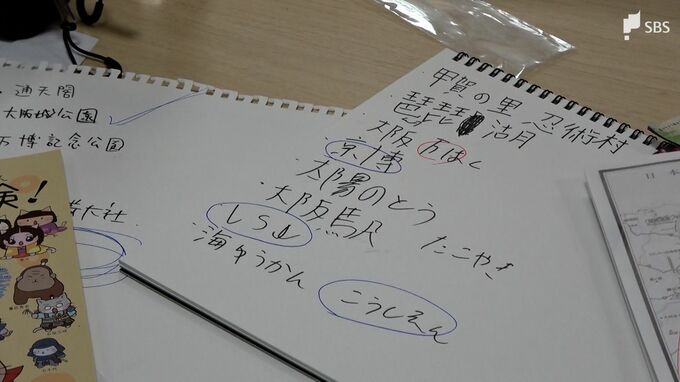 SBS
・通天閣
大阪城公園
万博記念公園
大社
険!
・甲賀の里 忍術村
・琵琶湖
・大阪 万はく
京博
・太陽のとう
・大阪駅 たこやき
USJ
海ゆうかん
こうしえん
日本